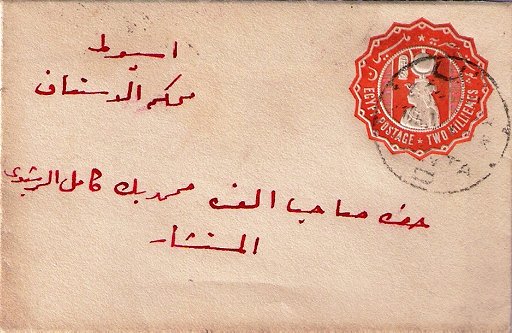 اسيوط
محكمة الاستئناف
حضرة صاحب العزة محمد بك كامل الرشيدى
المستشار
EGYPT POSTAGE ★ TWO MILLIEMES